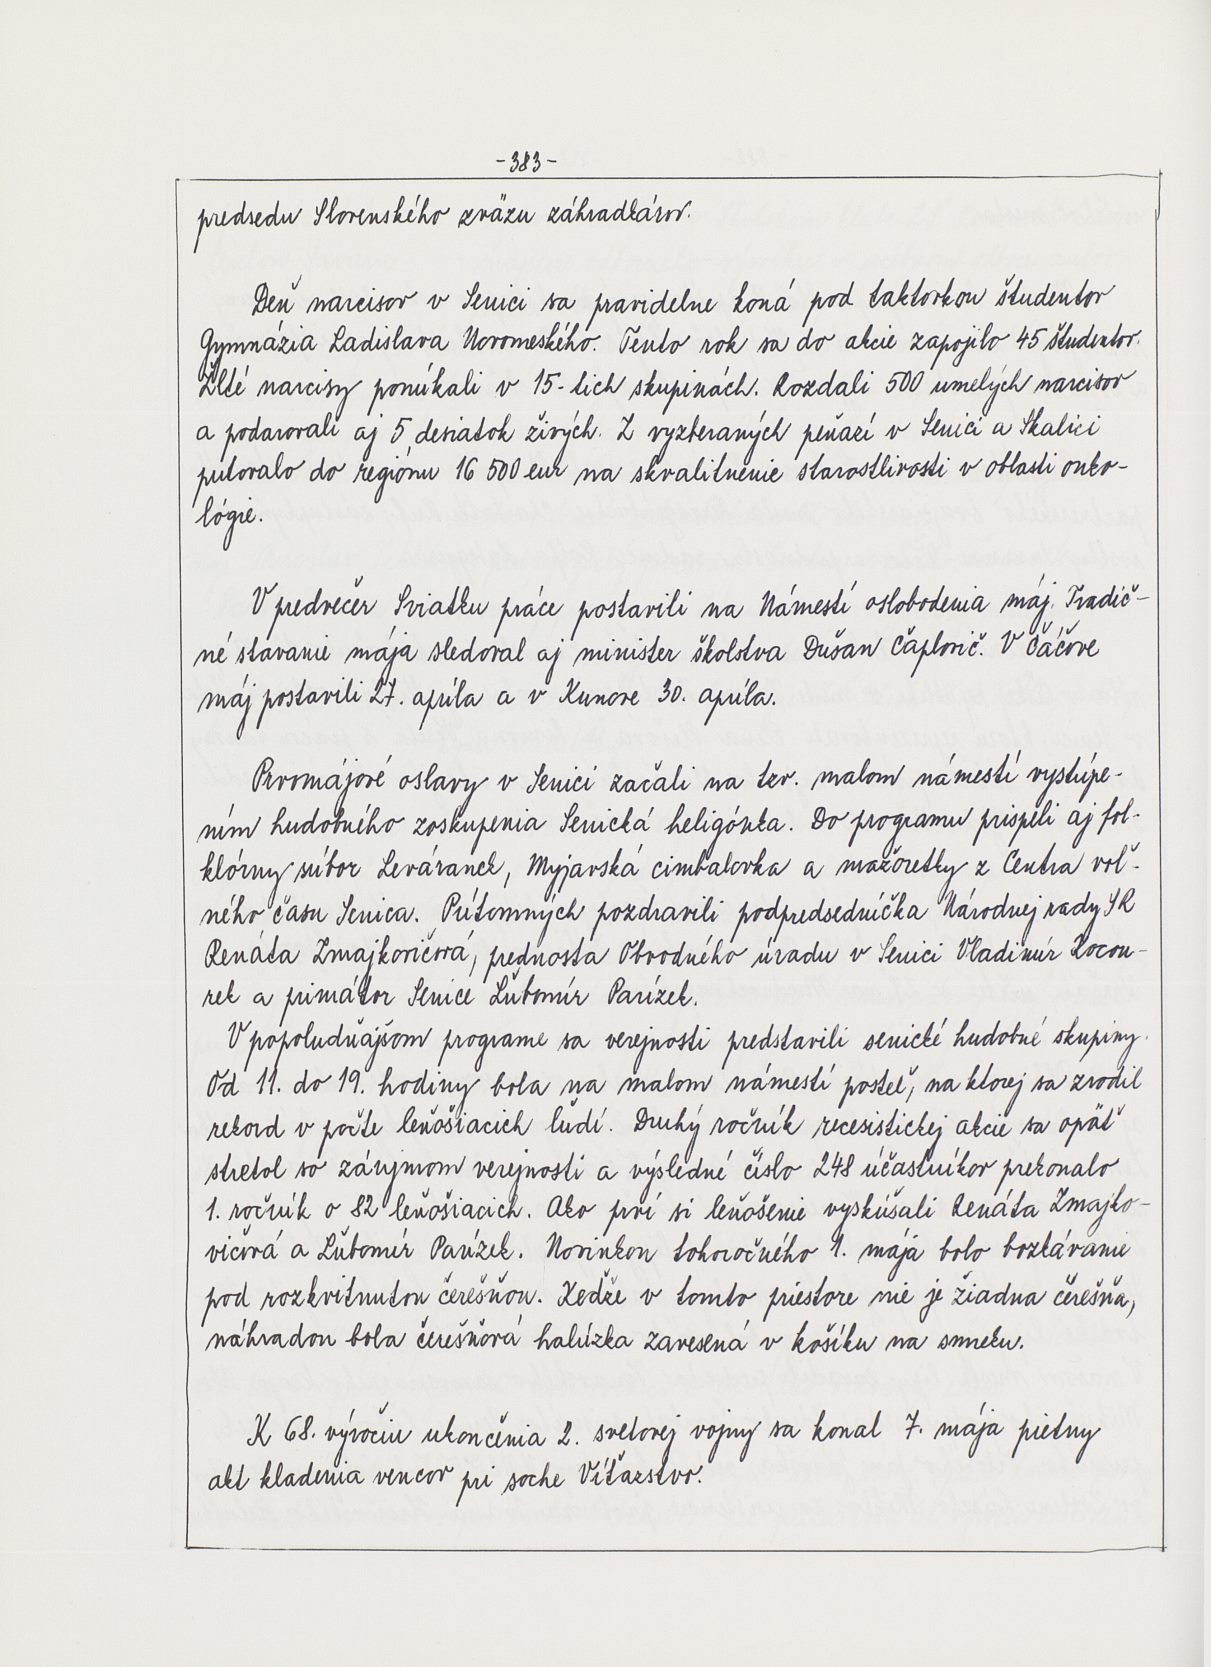 -383-
predsedu Slovenského zväzu záhradkárov.
Deň narcisov v Senici sa pravidelne koná pod taktovkou študentov
Gymnázia Ladislava Novomeského. Tento rok sa do akcie zapojilo 45 študentov.
Žlté narcisy ponúkali v 15-tich skupinách. Rozdali 500 umelých narcisov
a podarovali aj 5 desiatok živých. Z vyzbieraných peňazí v Senici a Skalici
putovalo do regiónu 16 500 eur na skvalitnenie starostlivosti v oblasti onko-
lógie.
V predvečer Sviatku práce postavili na Námestí oslobodenia máj. Tradič-
né stavanie mája sledoval aj minister školstva Dušan Čaplovič. V Čáčove
máj postavili 27. apríla a v Kunove 30. apríla.
Prvomájové oslavy v Senici začali na tzv. malom námestí vystúpe-
ním hudobného zoskupenia Senická heligónka. Do programu prispeli aj fol-
klórny súbor Leváranek, Myjavská cimbalovka a mažoretky z Centra voľ-
ného času Senica. Prítomných pozdravili podpredsedníčka Národnej rady SR
Renáta Zmajkovičová, prednosta Obvodného úradu v Senici Vladimír Kocou-
rek a primátor Senice Ľubomír Parízek.
V popoludňajšom programe sa verejnosti predstavili senické hudobné skupiny.
Od 11. do 19. hodiny bola na malom námestí posteľ, na ktorej sa zrodil
rekord v počte leňošiacich ľudí. Druhý ročník recesistickej akcie sa opäť
stretol so záujmom verejnosti a výsledné číslo 248 účastníkov prekonalo
1. ročník o 82 leňošiacich. Ako prví si leňošenie vyskúšali Renáta Zmajko-
vičová a Ľubomír Parízek. Novinkou tohoročného 1. mája bolo bozkávanie
pod rozkvitnutou čerešňou. Keďže v tomto priestore nie je žiadna čerešňa,
náhradou bola čerešňová halúzka zavesená v košíku na smreku.
K 68. výročiu ukončenia 2. svetovej vojny sa konal 7. mája pietny
akt kladenia vencov pri soche Víťazstvo.